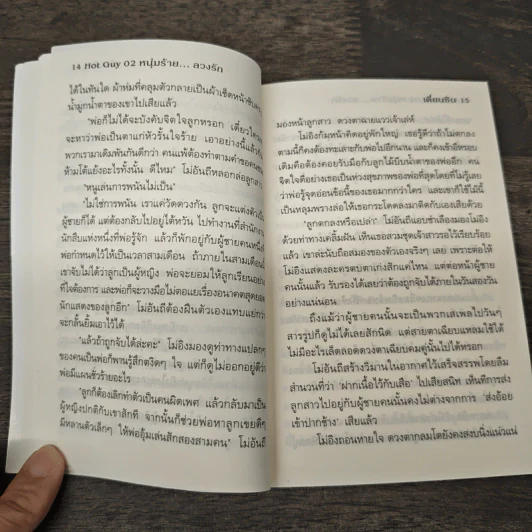 14 Hot Guy 02 หนุ่มร้าย... ลวงรัก
ได้ในทันใด ผ้าห่มที่คลุมตัวกลายเป็นผ้าเช็ดหน้าซับคราบ
น้ำมูกน้ำตาของเขาไปเสียแล้ว
"พ่อก็ไม่ได้จะบังคับจิตใจลูกหรอก เดี๋ยวใคร
จะหาว่าพ่อเป็นตาแก่หัวรั้นใจร้าย เอาอย่างนี้แล้วกัน
พวกเรามาเดิมพันกันดีกว่า คนแพ้ต้องทำตามคำขอคนชนะ
ห้ามโต้แย้งอะไรทั้งนั้น ดีไหม" โม่อันถีหลอกล่อลูกสาว
"หนูเล่นการพนันไม่เป็น"
"ไม่ใช่การพนัน เราแค่วัดดวงกัน ลูกจะแต่งตัวเป็น
ผู้ชายก็ได้ แต่ต้องกลับไปอยู่ไต้หวัน ไปทำงานที่สำนักงาน
นักสืบแห่งหนึ่งที่พ่อรู้จัก แล้วก็พักอยู่กับผู้ชายคนหนึ่งที่
พ่อกำหนดไว้ให้เป็นเวลาสามเดือน ถ้าภายในสามเดือนนี้
เขาจับไม่ได้ว่าลูกเป็นผู้หญิง พ่อจะยอมให้ลูกเรียนอย่าง
ที่ใจต้องการ และพ่อก็จะวางมือไม่ต่อแยเรื่องอนาคตสุดยอด
นักแสดงของลูกอีก" โม่อันถีต้องฝืนตัวเองแทบแย่กว่า
จะกลั้นยิ้มเอาไว้ได้
"แล้วถ้าถูกจับได้ล่ะคะ" โม่อิงมองดูท่าทางแปลกๆ
ของคนเป็นพ่อก็พานรู้สึกตงิดๆ ใจ แต่ก็ดูไม่ออกอยู่ดีว่า
พ่อมีแผนชั่วร้ายอะไร
"ลูกก็ต้องเลิกทำตัวเป็นคนผิดเพศ แล้วกลับมาเป็น
ผู้หญิงปกติกับเขาสักที จากนั้นก็ช่วยพ่อหาลูกเขยดีๆ
มีหลานตัวเล็กๆ ให้พ่ออุ้มเล่นสักสองสามคน" โม่อันถี
เตี่ยนซิน 15
มองหน้าลูกสาว ดวงตาฉายแววเจ้าเล่ห์
โม่อิงก้มหน้าคิดอยู่พักใหญ่ เธอรู้ดีว่าถ้าไม่ตกลง
ตามนี้ก็คงต้องทะเลาะกับพ่อไปอีกนาน และก็คงเข้าอีหรอบ
เดิมคือต้องคอยรับมือกับลูกไม้บีบน้ำตาของพ่ออีก คน
จิตใจดีอย่างเธอเป็นห่วงสุขภาพของพ่อที่สุดโดยที่ไม่รู้เลย
ว่าพ่อรู้จุดอ่อนข้อนี้ของเธอมากกว่าใคร และเขาก็ใช้ไม้นี้
เป็นหลุมพรางล่อให้เธอกระโดดลงมาติดกับเองเสียด้วย
"ลูกตกลงหรือเปล่า" โม่อันถีแอบชำเลืองมองโม่อิง
ด้วยท่าทางเคลิ้มฝัน เห็นเธอสวมชุดเจ้าสาวรอไว้เรียบร้อย
แล้ว เขาล่ะนับถือสมองของตัวเองจริงๆ เลย เพราะต่อให้
โม่อิงแสดงละครตบตาเก่งสักแค่ไหน แต่ต่อหน้าผู้ชาย
คนนั้นแล้ว รับรองได้เลยว่าต้องถูกจับได้ภายในวันสองวัน
อย่างแน่นอน
ถึงแม้ว่าผู้ชายคนนั้นจะเป็นพวกเสเพลไปวันๆ
สารรูปก็ดูไม่ได้เลยสักนิด แต่สายตาเฉียบแหลมใช้ได้
ไม่มีอะไรเล็ดลอดดวงตาเฉียบคมคู่นั้นไปได้หรอก
โม่อันถีสร้างวิมานในอากาศไว้เสร็จสรรพโดยลืม
สำนวนที่ว่า 'ฝากเนื้อไว้กับเสือ' ไปเสียสนิท เห็นทีการส่ง
ลูกสาวไปอยู่กับผู้ชายคนนั้นคงไม่ต่างจากการ 'ส่งอ้อย
เข้าปากช้าง' เสียแล้ว
โม่อิงถอนหายใจ ดวงตากลมโตยังคงสงบนิ่งแน่วแน่